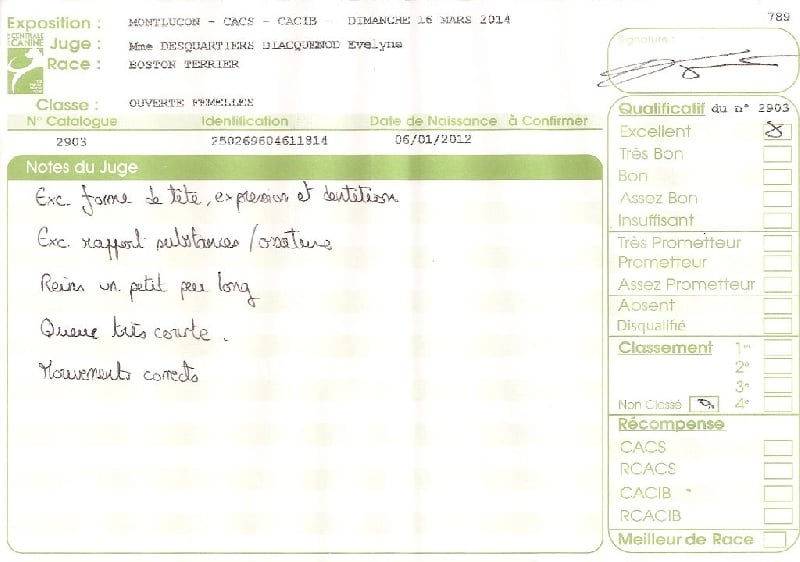 789
Exposition : MONTLUCON - CACS - CACIB - DIMANCHE 16 MARS 2014
CENTRALE
CANINE
Juge : Mme DESQUARTIERS DIACQUENOD Evelyne
Race : BOSTON TERRIER
Classe : OUVERTE FEMELLES
N° Catalogue Identification Date de Naissance à Confirmer
2903 250269604611814 06/01/2012
Notes du Juge
Exc. forme de tête, expression et dentition
Exc. rapport substances / ossature
Reins un petit peu long
Queue très courte.
Mouvements corrects
Signature :
Qualificatif du n° 2903
Excellent
Très Bon
Bon
Assez Bon
Insuffisant
Très Prometteur
Prometteur
Assez Prometteur
Absent
Disqualifié
Classement 1er
2e
3e
Non Classé 4e
Récompense
CACS
RCACS
CACIB
RCACIB
Meilleur de Race